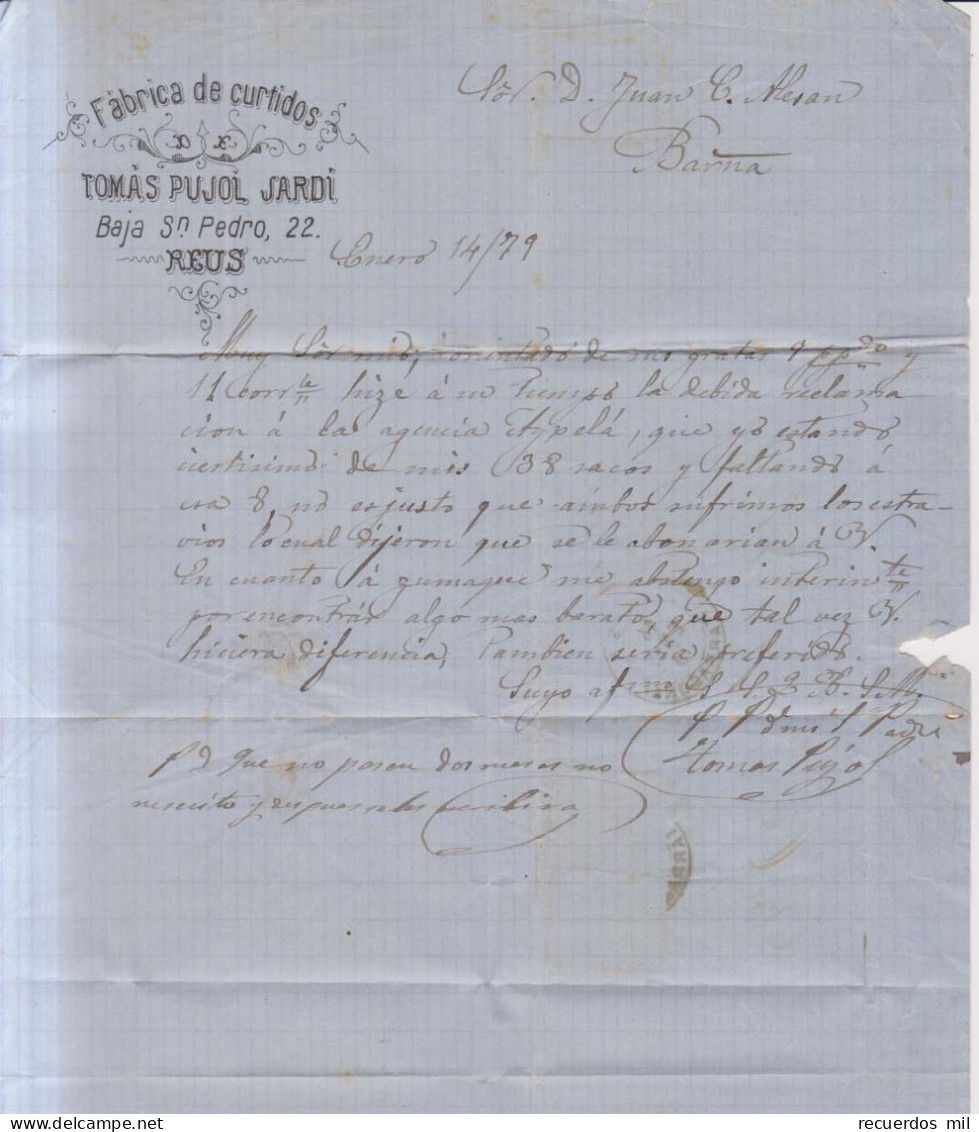 Fàbrica de curtidos
DE
TOMÀS PUJOL SARDÌ
Baja Sn Pedro, 22.
REUS
Sôr. D. Juan C. Alesan
Barna
Enero 14/79
Muy Sôr mio, de mis gratas 9 pp.do y
11 corrte hize á su tiempo la debida reclama
cion á la agencia que yo estando
ciertisimo de mis 38 sacos y faltando á
esa 8, no es justo que ambos sufrimos los estra-
vios lo cual dijeron que se le abonarian á V.
En cuanto á zumaque me abstengo interinte
por encontrar algo mas barato, que tal vez V.
hiciera diferencia, tambien seria preferido.
Suyo afmo S. S. q. B. S. M.
P. P. de mi S. Padre
Tomas Pujol
P d Que no pasen dos meses no
nesecito y despues
CARRAL
recuerdos mil